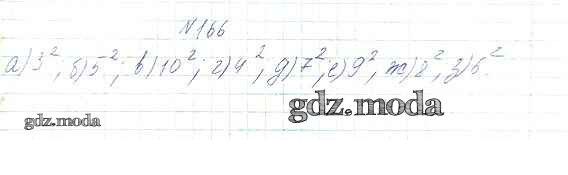 №166
а) 3²; б) 5²; в) 10²; г) 4², д) 7²; е) 9², ж) 2², з) 6².
gdz.moda
gdz.moda